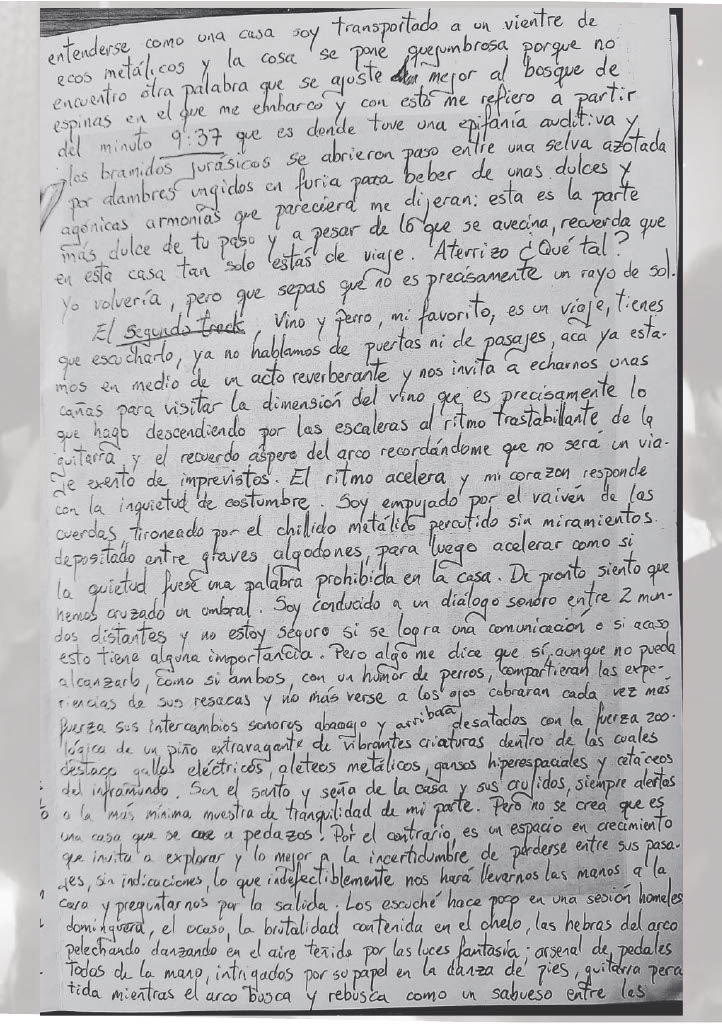 entenderse como una casa soy transportado a un vientre de
ecos metálicos y la cosa se pone quejumbrosa porque no
encuentro otra palabra que se ajuste mejor al bosque de
espinas en el que me embarco y con esto me refiero a partir
del minuto 9:37 que es donde tuve una epifanía auditiva y
los bramidos jurásicos se abrieron paso entre una selva azotada
por alambres ungidos en furia para beber de unas dulces y
agónicas armonías que pareciera me dijeran: esta es la parte
más dulce de tu paso y a pesar de lo que se avecina, recuerda que
en esta casa tan solo estás de viaje. Aterrizo ¿Qué tal?
Yo volvería, pero que sepas que no es precisamente un rayo de sol.
El segundo track, Vino y Perro, mi favorito, es un viaje, tienes
que escucharlo, ya no hablamos de puertas ni de pasajes, acá ya esta-
mos en medio de un acto reverberante y nos invita a echarnos unas
cañas para visitar la dimensión del vino que es precisamente lo
que hago descendiendo por las escaleras al ritmo trastabillante de la
guitarra y el recuerdo áspero del arco recordándome que no será un via-
je exento de imprevistos. El ritmo acelera y mi corazón responde
con la inquietud de costumbre. Soy empujado por el vaivén de las
cuerdas, tironeado por el chillido metálico percutido sin miramientos.
depositado entre graves algodones, para luego acelerar como si
la quietud fuese una palabra prohibida en la casa. De pronto siento que
hemos cruzado un umbral. Soy conducido a un diálogo sonoro entre 2 mun-
dos distantes y no estoy seguro si se logra una comunicación o si acaso
esto tiene alguna importancia. Pero algo me dice que sí, aunque no pueda
alcanzarlo, como si ambos, con un humor de perros, compartieran las expe-
riencias de sus resacas y no más verse a los ojos cobraran cada vez más
fuerza sus intercambios sonoros abaaajo y arribaaa desatados con la fuerza zoo-
lógica de un piño extravagante de vibrantes criaturas dentro de las cuales
destaco gallos eléctricos, aleteos metálicos, gansos hiperespaciales y cetáceos
del inframundo. Son el santo y seña de la casa y sus crujidos, siempre alertas
a la más mínima muestra de tranquilidad de mi parte. Pero no se crea que es
una casa que se cae a pedazos! Por el contrario, es un espacio en crecimiento
que invita a explorar y lo mejor a la incertidumbre de perderse entre sus pasa-
jes, sin indicaciones, lo que indefectiblemente nos hará llevarnos las manos a la
cara y preguntarnos por la salida. Los escuché hace poco en una sesión homeles
dominguera, el ocaso, la brutalidad contenida en el chelo, las hebras del arco
pelechando danzando en el aire teñido por las luces fantasía; arsenal de pedales
todos de la mano, intrigados por su papel en la danza de pies, guitarra percu
tida mientras el arco busca y rebusca como un sabueso entre las